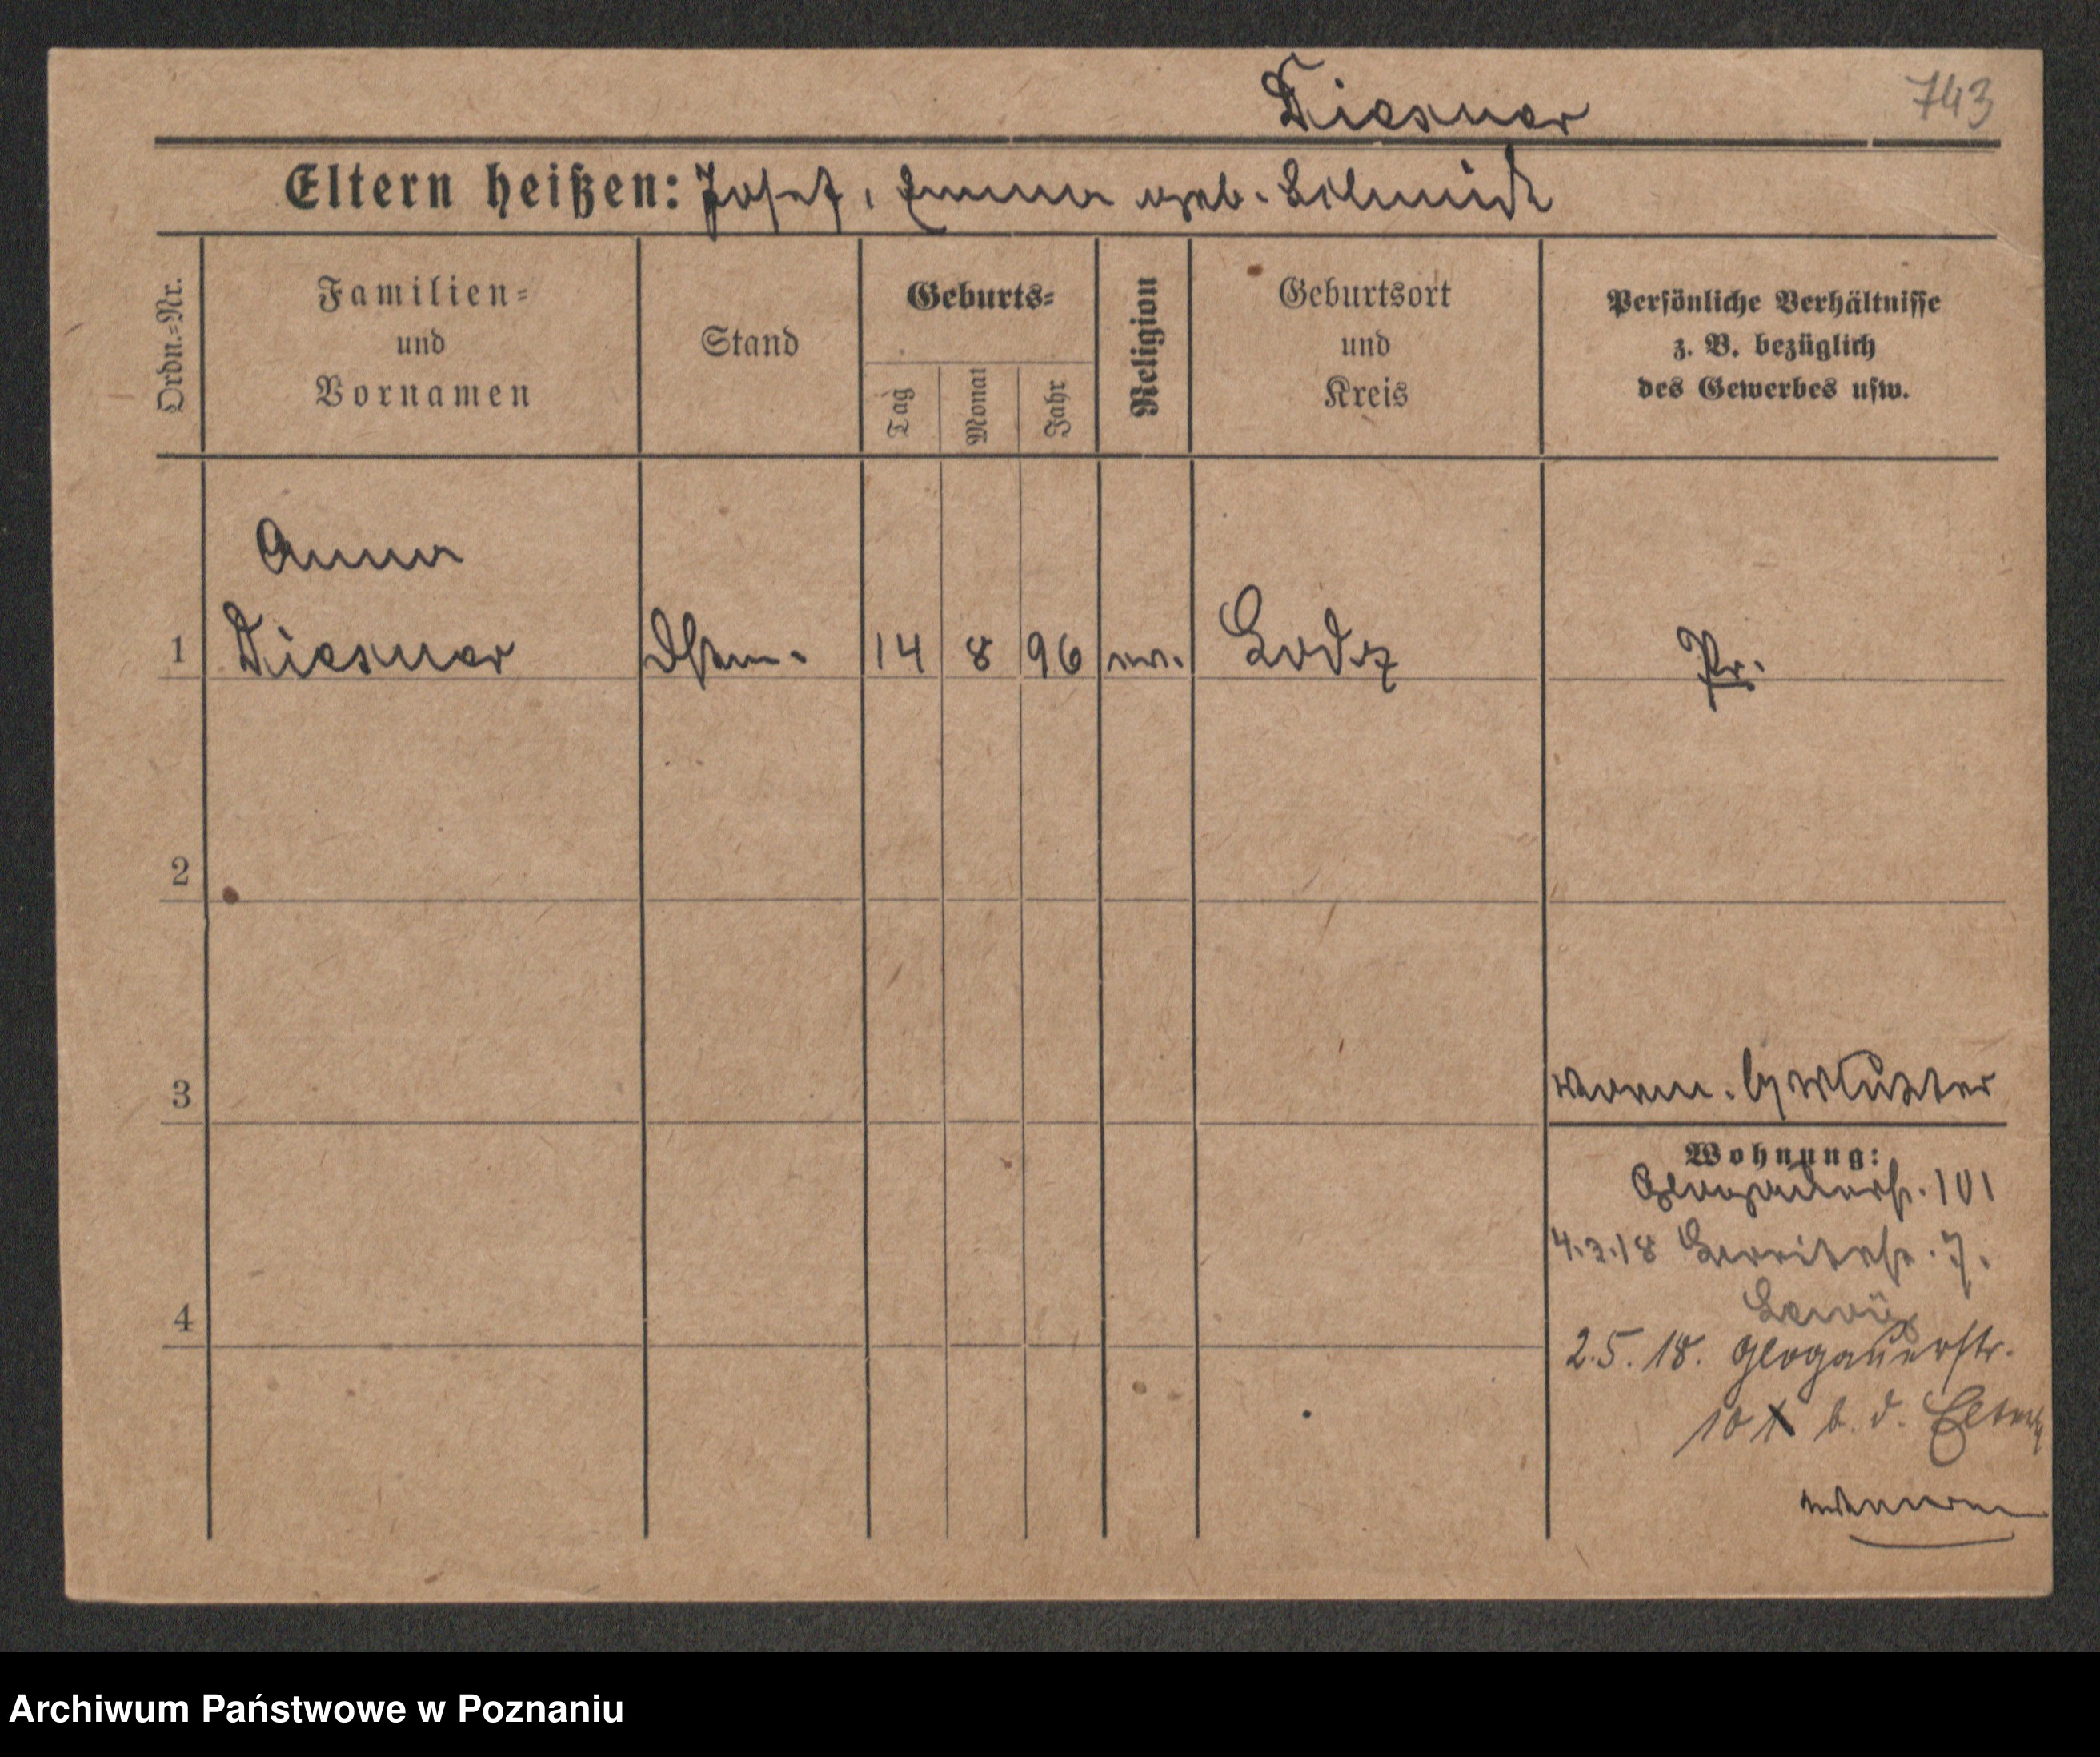 Diesner
743
Eltern heißen: Josef, Emma geb. Schmidt
Ordn.=Nr.
Familien=
und
Vornamen
Stand
Geburts=
Tag
Monat
Jahr
Religion
Geburtsort
und
Kreis
Persönliche Verhältnisse
z. B. bezüglich
des Gewerbes usw.
Anna
1 Diesner 14 8 96 ev. Lodz Pr.
2
3
Wohnung:
Glogauerstr. 101
4.3.18 7.
4
2.5.18. Glogauerstr.
101 b. d. Eltern
Archiwum Państwowe w Poznaniu